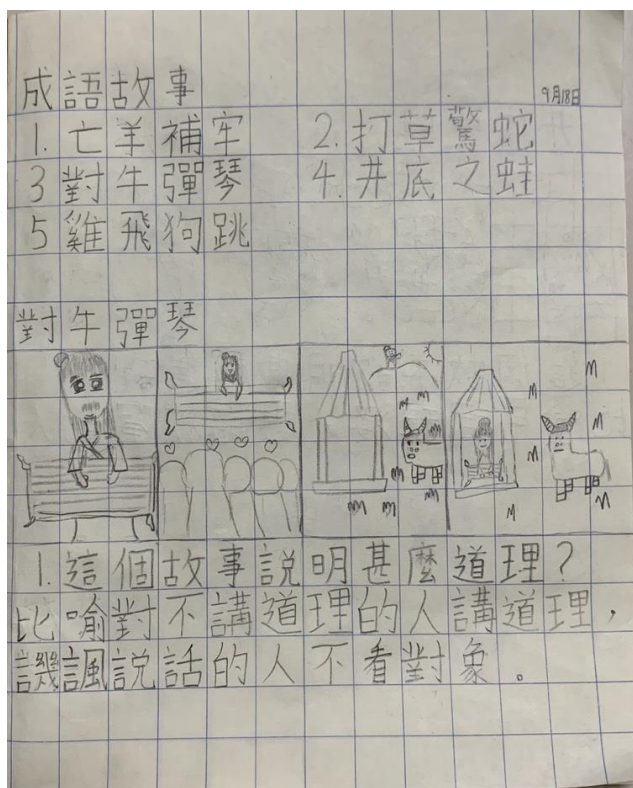 成語故事 9月18日
1. 亡羊補牢 2. 打草驚蛇
3 對牛彈琴 4. 井底之蛙
5 雞飛狗跳
對牛彈琴
1. 這個故事説明甚麼道理?
比喻對不講道理的人講道理,
譏諷説話的人不看對象。